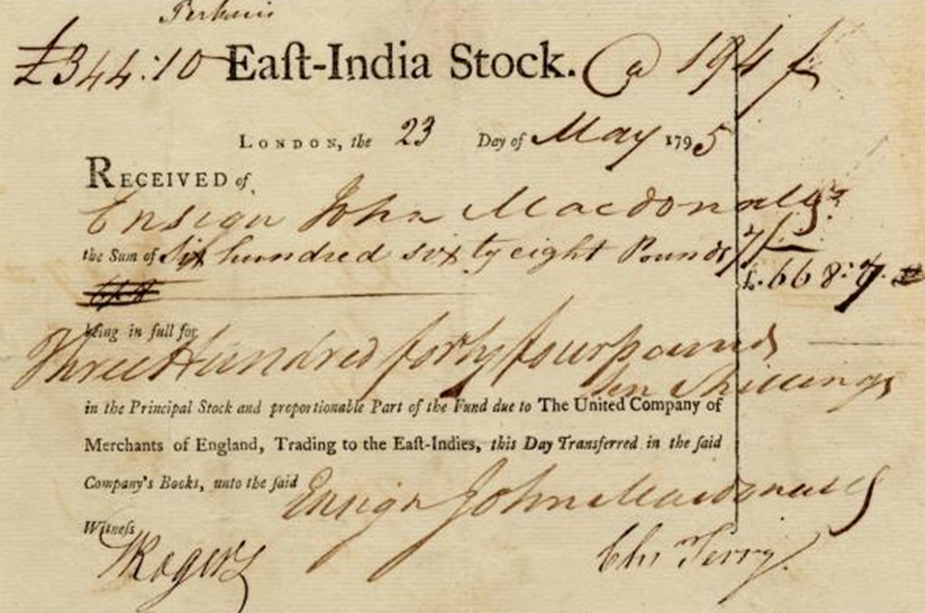 Perkins
£344:10 Eaſt-India Stock. @ 194
LONDON, the 23 Day of May 1795
RECEIVED of
Ensign John Macdonald
the Sum of Six hundred sixty eight Pounds 7/
£.668:7.
being in full for
Three Hundred forty four pounds
ten Shillings
in the Principal Stock and proportionable Part of the Fund due to The United Company of
Merchants of England, Trading to the Eaſt-Indies, this Day Transferred in the ſaid
Company's Books, unto the ſaid Ensign John Macdonald
Witneſs
Rogers Chr Terry